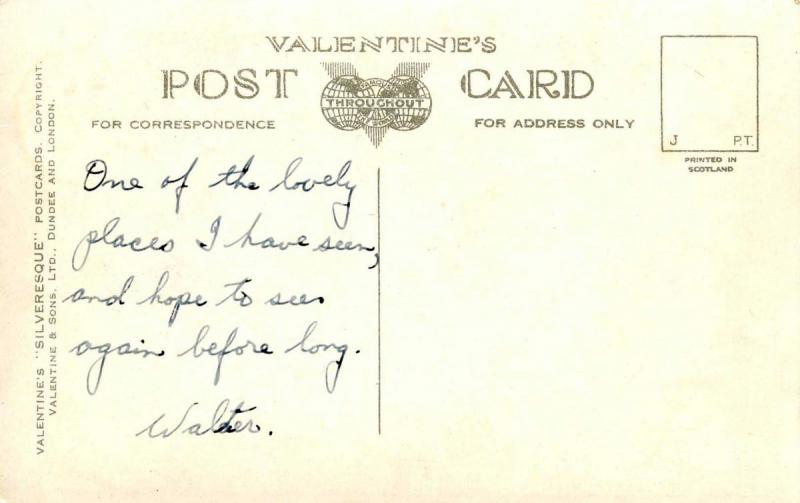 VALENTINE'S
POST CARD
THROUGHOUT
FOR CORRESPONDENCE
FOR ADDRESS ONLY
J P.T.
PRINTED IN
SCOTLAND
VALENTINE'S "SILVERESQUE" POSTCARDS. COPYRIGHT.
VALENTINE & SONS, LTD., DUNDEE AND LONDON.
One of the lovely
places I have seen,
and hope to see
again before long.
Walter.